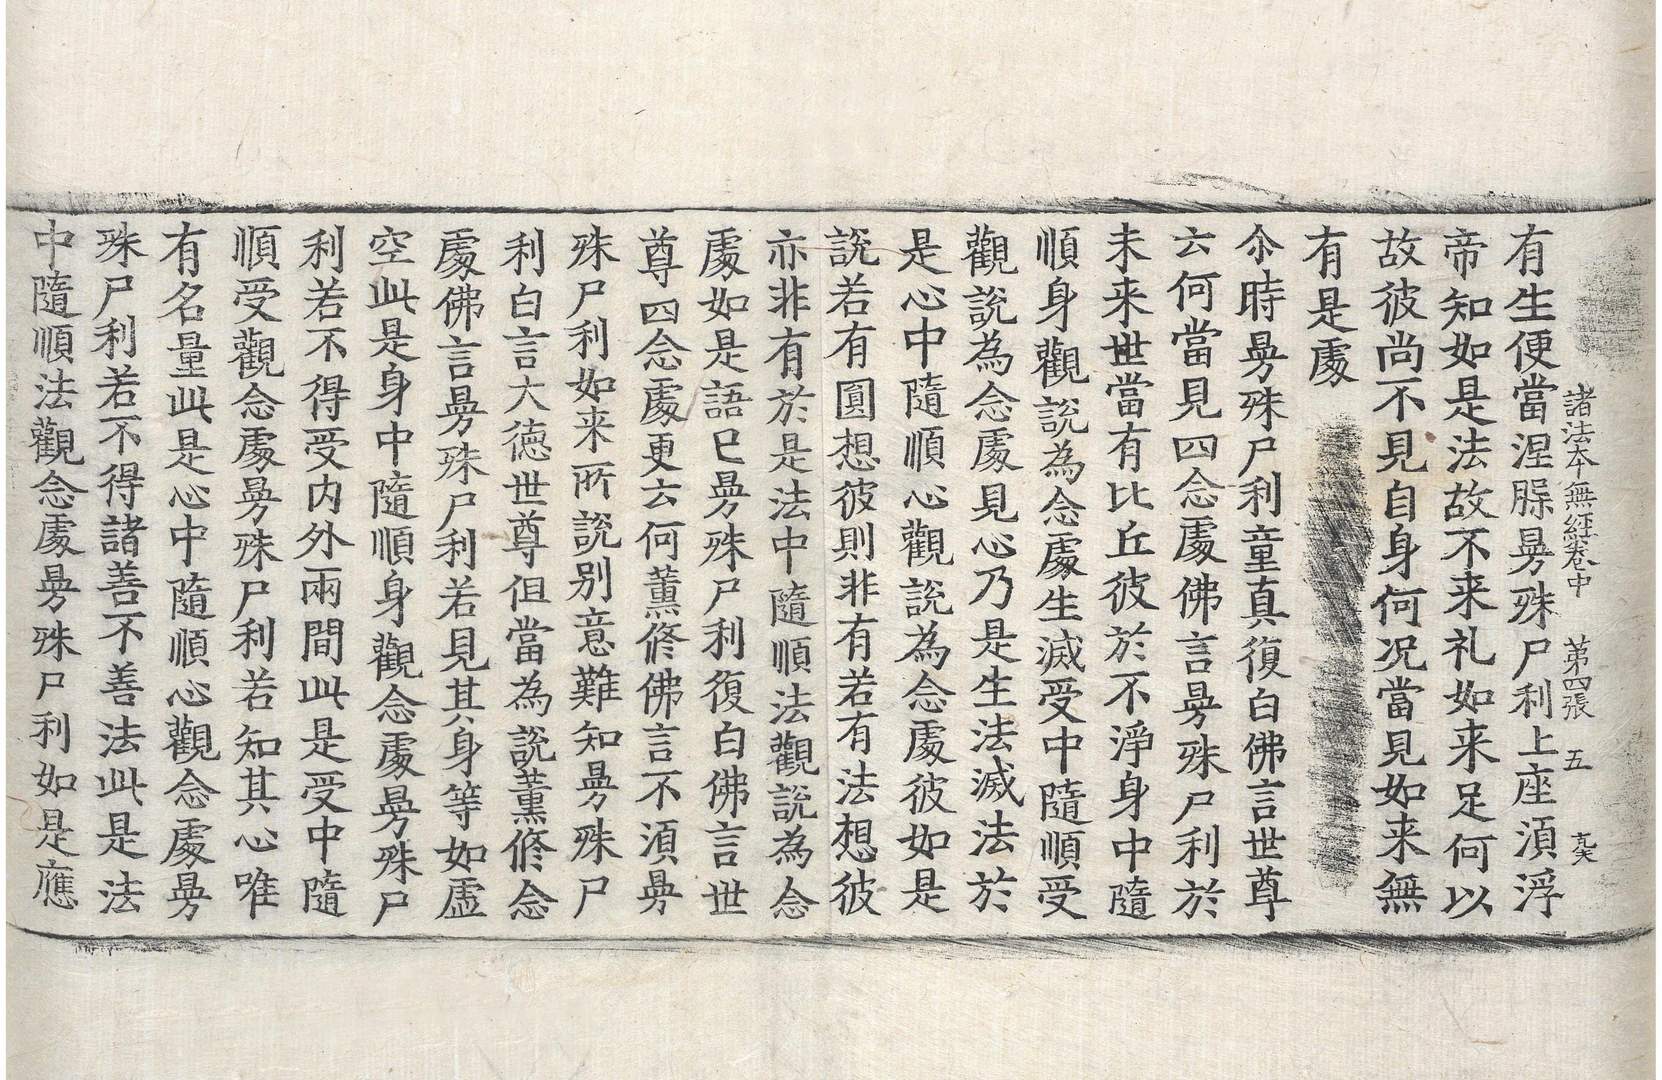 諸法本無經卷中 第四張 五
有生便當涅槃曼殊尸利上座須浮
帝知如是法故不来礼如来足何以
故彼尚不見自身何况當見如来無
有是處
尒時曼殊尸利童真復白佛言世尊
云何當見四念處佛言曼殊尸利於
未来世當有比丘彼於不淨身中隨
順身觀說為念處生滅受中隨順受
觀說為念處見心乃是生法滅法於
是心中隨順心觀說為念處彼如是
說若有圓想彼則非有若有法想彼
亦非有於是法中隨順法觀說為念
處如是語已曼殊尸利復白佛言世
尊四念處更云何薰修佛言不湏曼
殊尸利如来所說别意難知曼殊尸
利白言大德世尊但當為說薰修念
處佛言曼殊尸利若見其身等如虛
空此是身中隨順身觀念處曼殊尸
利若不得受内外兩間此是受中隨
順受觀念處曼殊尸利若知其心唯
有名量此是心中隨順心觀念處曼
殊尸利若不得諸善不善法此是法
中隨順法觀念處曼殊尸利如是應